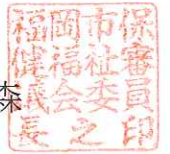 福岡市保
健福祉審
議会委員
長之印